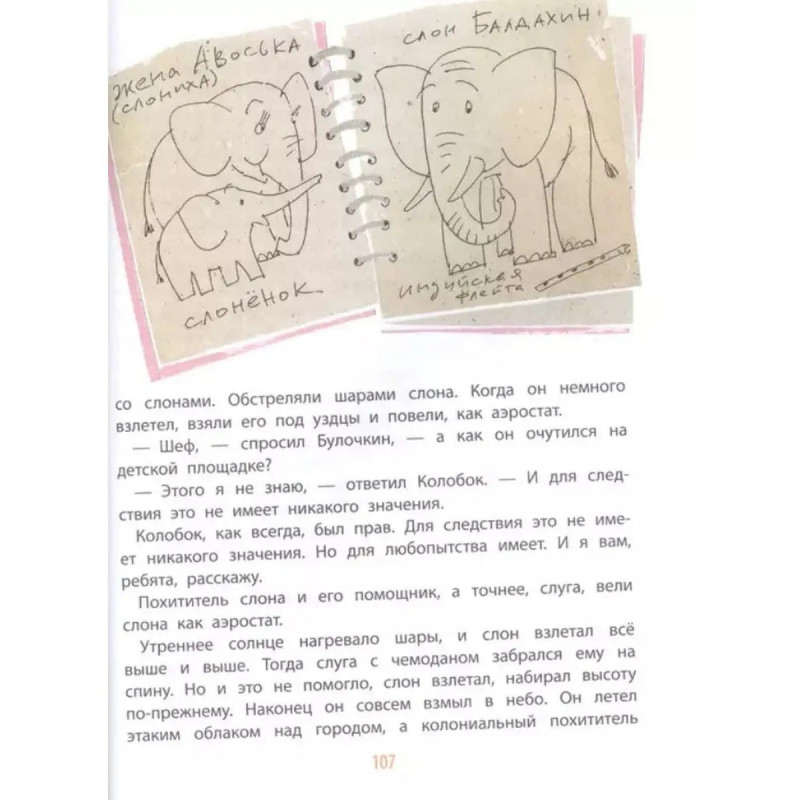 жена Авоська
(слониха)
слонёнок
слон Балдахин
индийская
флейта
со слонами. Обстреляли шарами слона. Когда он немного
взлетел, взяли его под уздцы и повели, как аэростат.
— Шеф, — спросил Булочкин, — а как он очутился на
детской площадке?
— Этого я не знаю, — ответил Колобок. — И для след-
ствия это не имеет никакого значения.
Колобок, как всегда, был прав. Для следствия это не име-
ет никакого значения. Но для любопытства имеет. И я вам,
ребята, расскажу.
Похититель слона и его помощник, а точнее, слуга, вели
слона как аэростат.
Утреннее солнце нагревало шары, и слон взлетал всё
выше и выше. Тогда слуга с чемоданом забрался ему на
спину. Но и это не помогло, слон взлетал, набирал высоту
по-прежнему. Наконец он совсем взмыл в небо. Он летел
этаким облаком над городом, а колониальный похититель
107